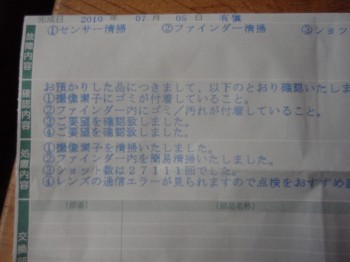 完成日 2010 年 07 月 05 日 有償
故障内容
①センサー清掃 ②ファインダー清掃 ③ショット
お預かりした品につきまして、以下のとおり確認いたしま
①撮像素子にゴミが付着していること。
②ファインダー内にゴミ／汚れが付着していること。
③ご要望を確認致しました。
④ご要望を確認致しました。
処置内容
①撮像素子を清掃いたしました。
②ファインダー内を簡易清掃いたしました。
③ショット数は27111回でした。
④レンズの通信エラーが見られますので点検をおすすめ
部品名称
交換